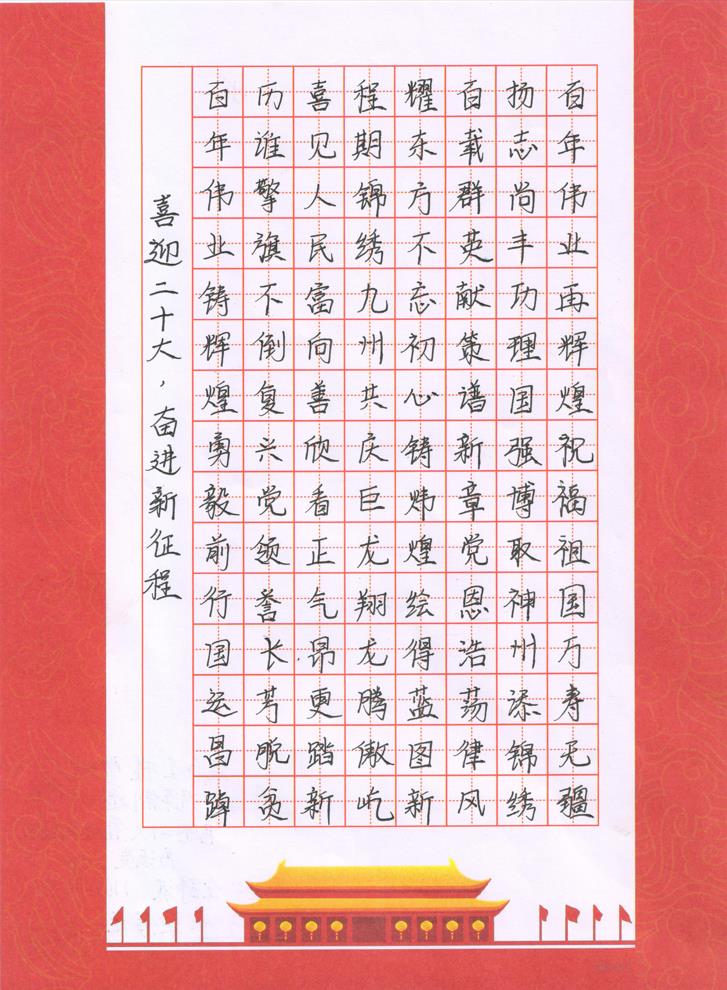 喜迎二十大，奋进新征程
百年伟业铸辉煌勇毅前行国运昌踔
历谁擎旗不倒复兴党领誉长芳脱贫
喜见人民富向善欣看正气昂更踏新
程期锦绣九州共庆巨龙翔龙腾傲屹
耀东方不忘初心铸炜煌绘得蓝图新
百载群英献策谱新章党恩浩荡律风
扬志尚丰功理国强博取神州添锦绣
百年伟业再辉煌祝福祖国万寿无疆